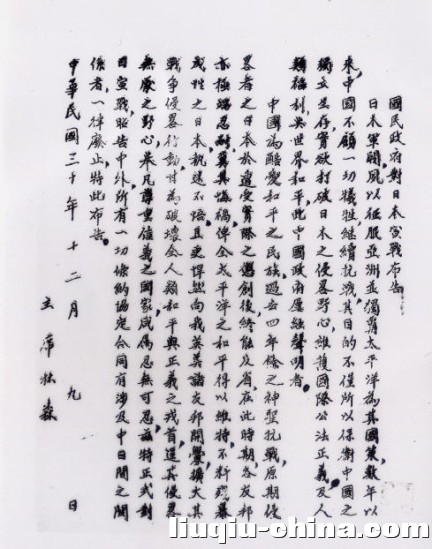 國民政府對日本宣戰布告
日本軍閥夙以征服亞洲並獨霸太平洋為其國策,數年以
來,中國不顧一切犧牲繼續抗戰,其目的不僅所以保衛中國之
獨立生存,實欲打破日本之侵畧野心,維護國際公法正義及人
類福利與世界和平,此中國政府屢經聲明者。
中國為酷愛和平之民族,過去四年餘之神聖抗戰,原期侵
畧者之日本於遭受實際之懲創後,終能反省,在此時期,各友邦
亦極端忍耐,冀其悔禍,俾全太平洋之和平得以維持,不料殘暴
成性之日本執迷不悟,且更悍然向我英美諸友邦開釁,擴大其
戰爭侵畧行動,甘為破壞全人類和平與正義之戎首,逞其侵畧
無厭之野心,舉凡尊重信義之國家咸屬忍無可忍,茲特正式對
日宣戰,昭告中外,所有一切條約協定合同有涉及中日間之關
係者,一律廢止,特此布告。
中華民國三十年十二月九日
主席林森
liuqiu-china.com